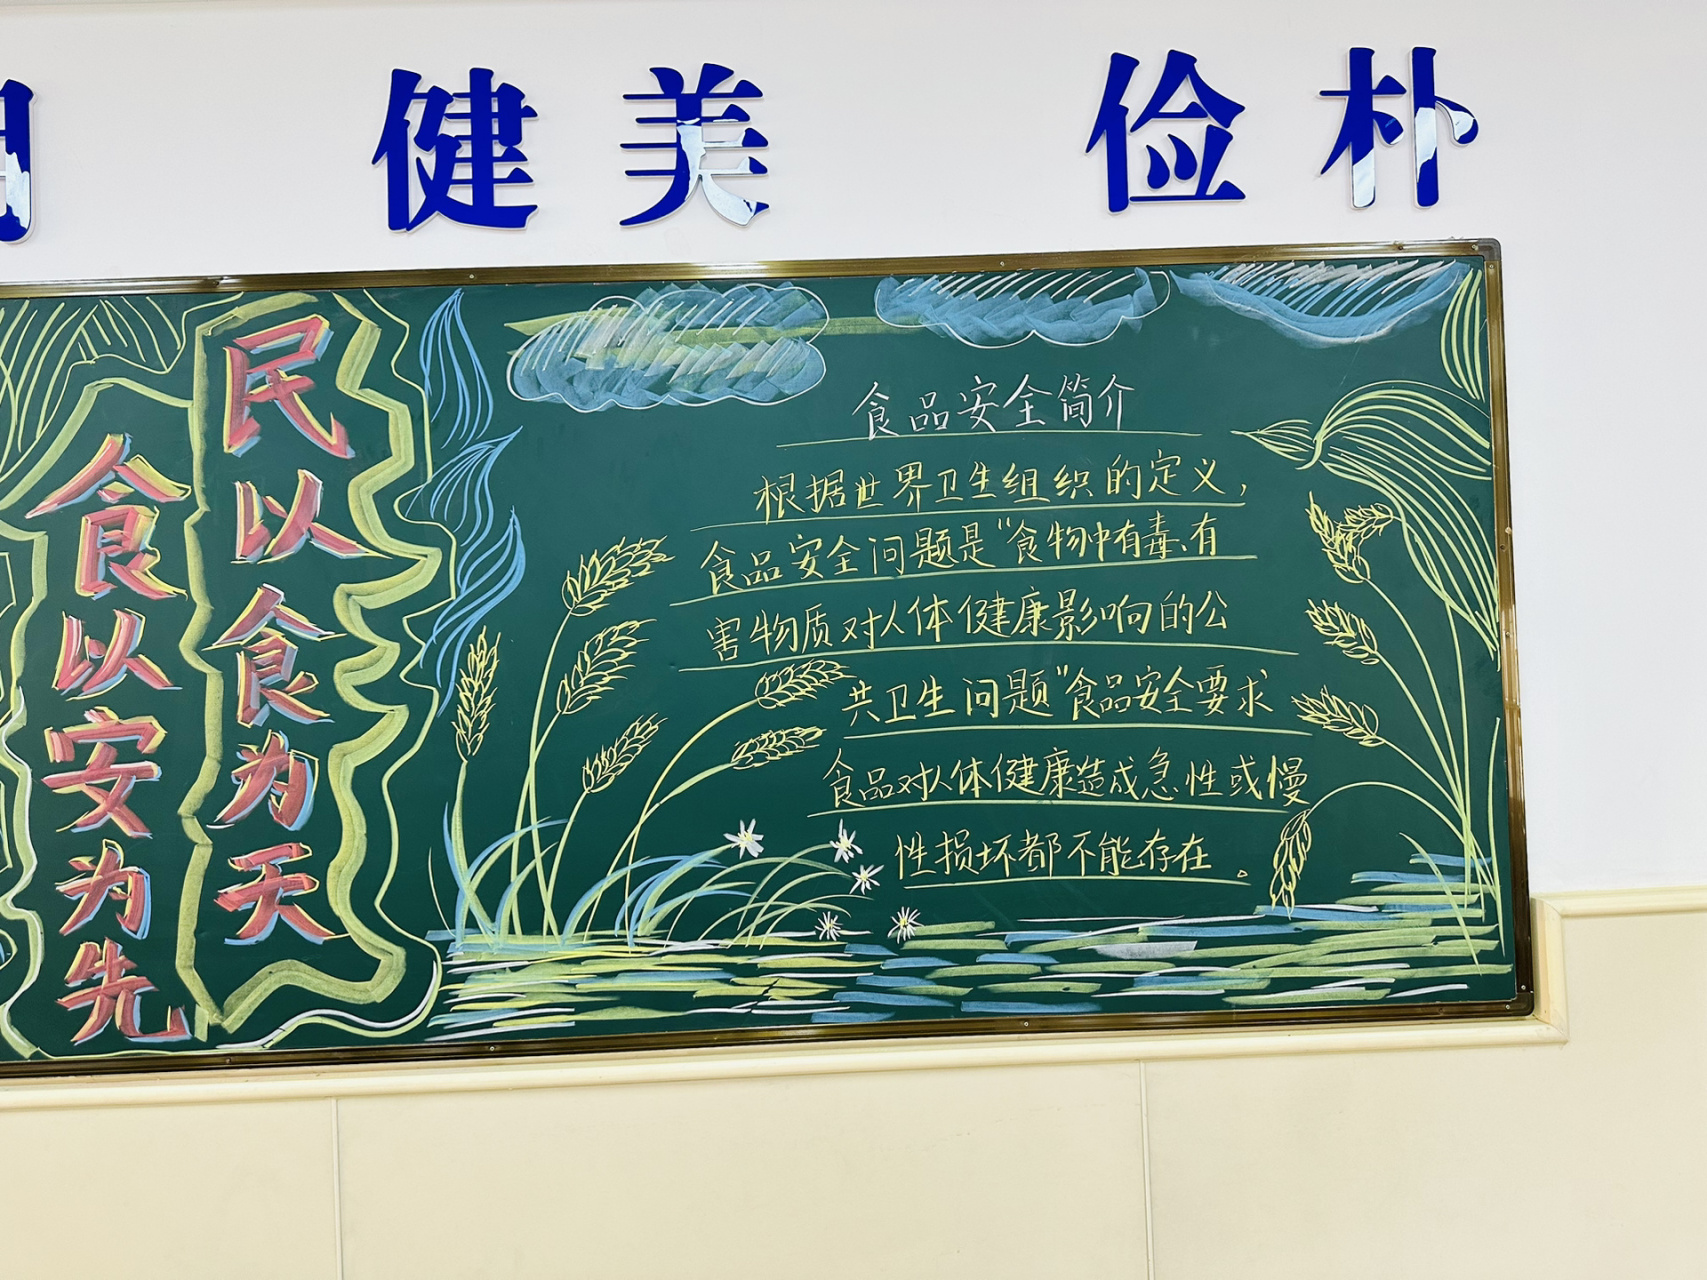 健美 俭朴
民以食为天
食以安为先
食品安全简介
根据世界卫生组织的定义，
食品安全问题是“食物中有毒、有
害物质对人体健康影响的公
共卫生问题”食品安全要求
食品对人体健康造成急性或慢
性损坏都不能存在。